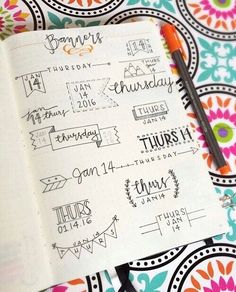 Banners
14
JAN
14
THURSDAY
JAN
14
2016
thursday
JAN
14
thurs
JAN
14
thursday
THURS
JAN 14
THURS 14
Jan 14
THURSDAY
thurs
JAN 14
THURS
01.14.16
THURS
JAN
14
THURS